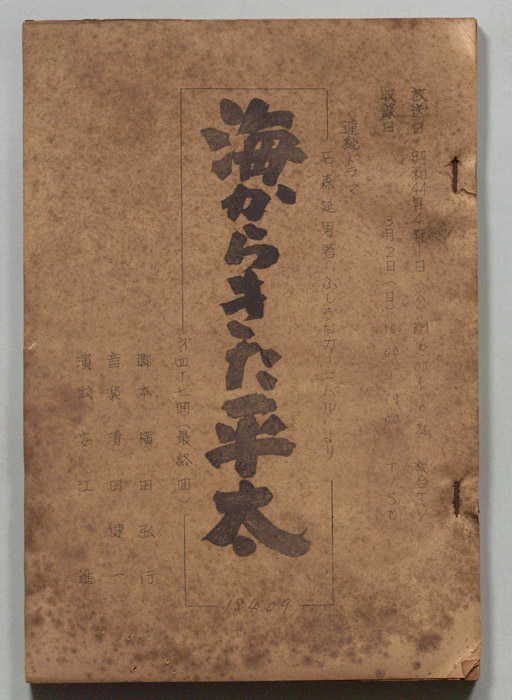 放送日 昭和44年4月1日
収録日 3月2日(日) 15:00~19:00
連続ドラマ
石森延男著 ふしぎなカーニバル より
海からきた平太
第四十七回(最終回)
脚本 横田弘行
音楽 清田健一
演出 安江進
18409